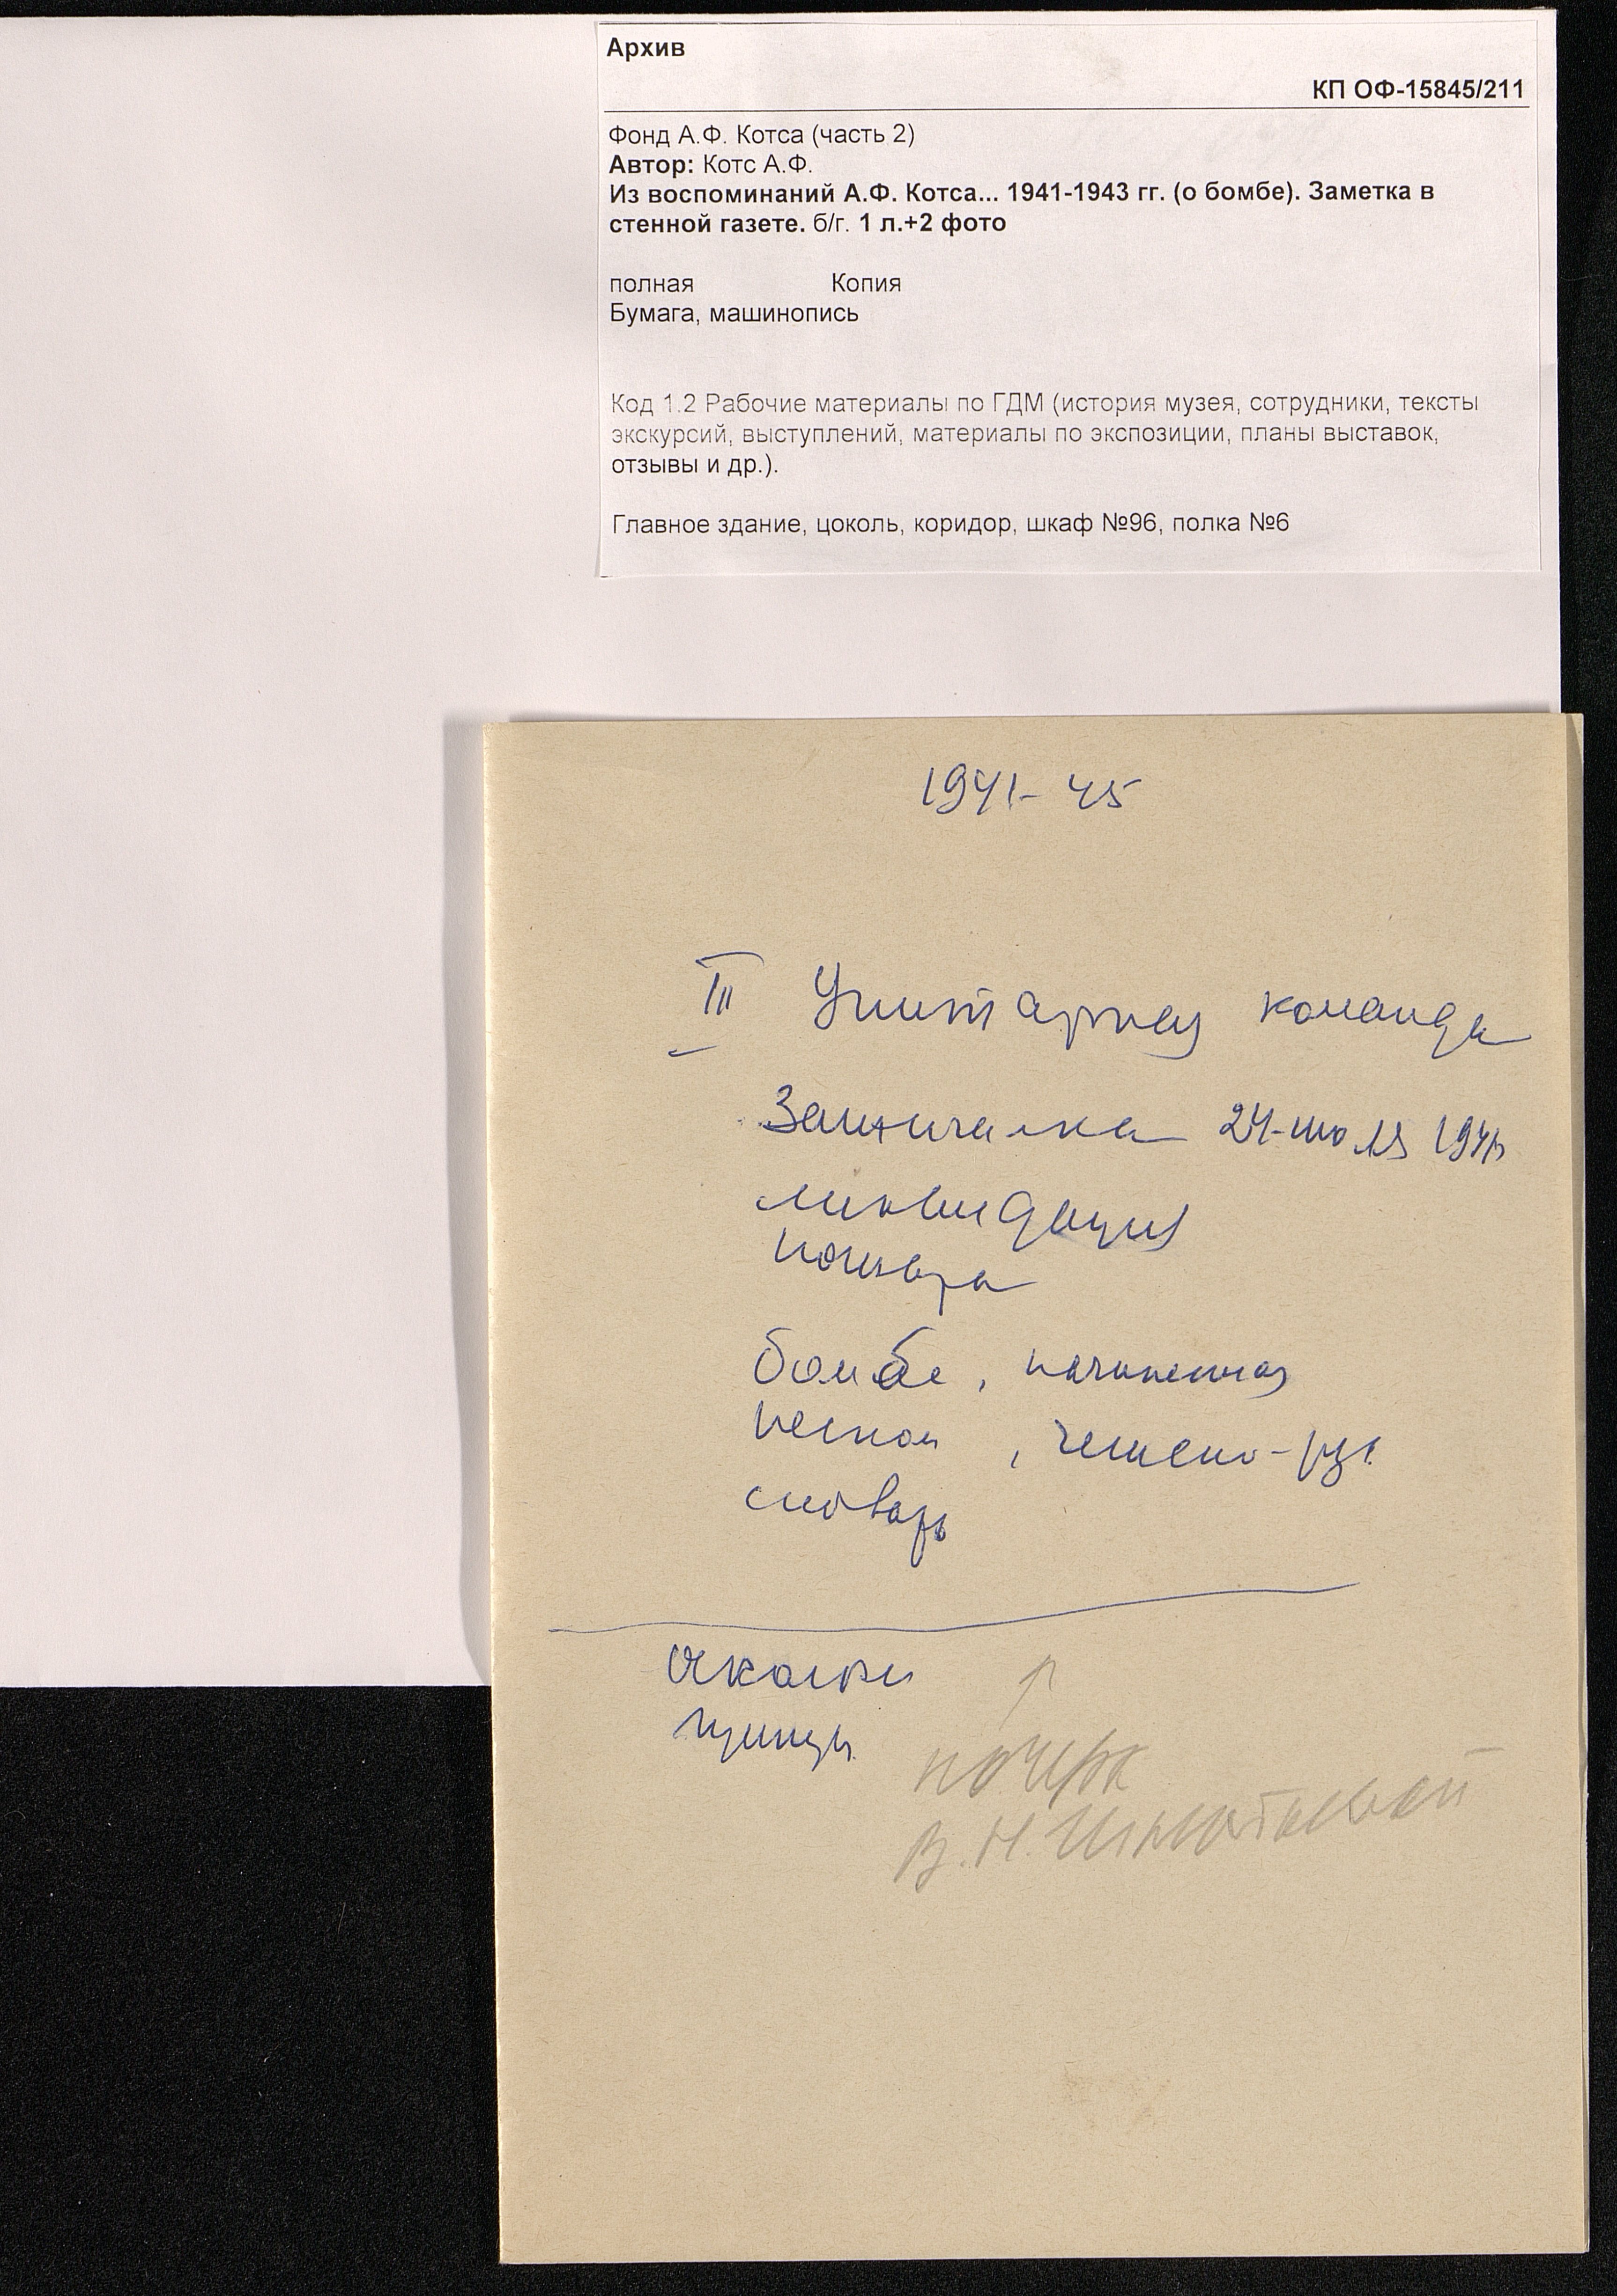 Архив
КП ОФ-15845/211
Фонд А.Ф. Котса (часть 2)
Автор: Котс А.Ф.
Из воспоминаний А.Ф. Котса... 1941-1943 гг. (о бомбе). Заметка в
стенной газете. б/г. 1 л.+2 фото
полная Копия
Бумага, машинопись
Код 1.2 Рабочие материалы по ГДМ (история музея, сотрудники, тексты
экскурсий, выступлений, материалы по экспозиции, планы выставок,
отзывы и др.).
Главное здание, цоколь, коридор, шкаф №96, полка №6
1941-45
III Унитарная команда
Зажигалка 24-июля 1941
ликвидация
пожара
бомба, начиненная
песком, чешско-рус.
словарь
почерк
В.Н. Игнатьевой